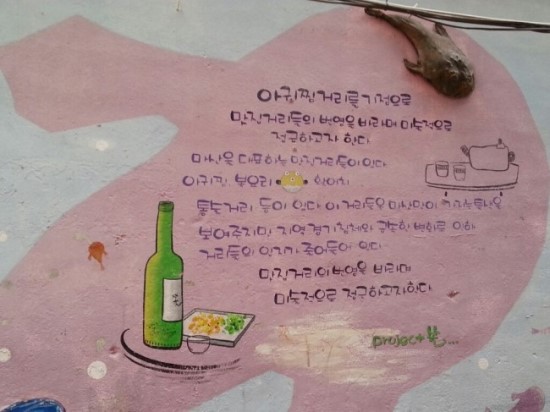 아귀찜거리를 기점으로
맛집거리들의 번영을 바라며 미술적으로
접근하고자 한다
마산을 대표하는 맛집거리들이 있다
아귀찜, 복요리
통술거리 들이 있다 이 거리들은 마산만이
보여주지만 지역 경기침체와 급속한 변화로 인하
거리들의 인기가 줄어들어 있다
맛집거리의 번영을 바라며
미술적으로 접근하고자 한다
project 쏠...